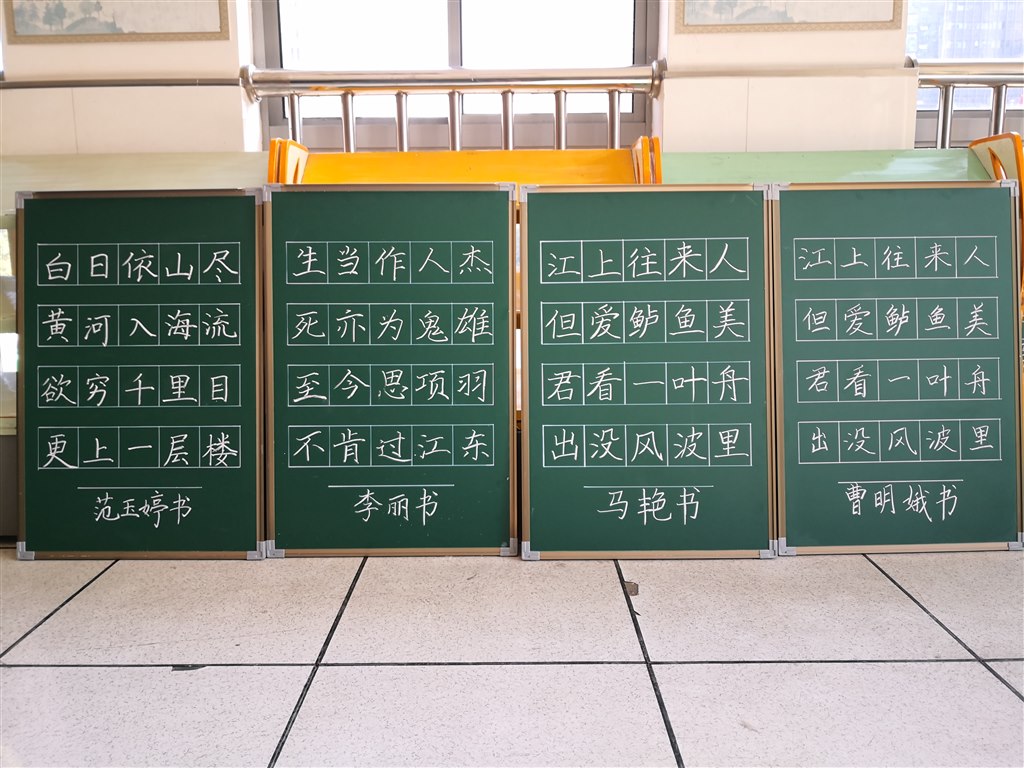 白日依山尽
黄河入海流
欲穷千里目
更上一层楼
范玉婷书
生当作人杰
死亦为鬼雄
至今思项羽
不肯过江东
李丽书
江上往来人
但爱鲈鱼美
君看一叶舟
出没风波里
马艳书
江上往来人
但爱鲈鱼美
君看一叶舟
出没风波里
曹明娥书